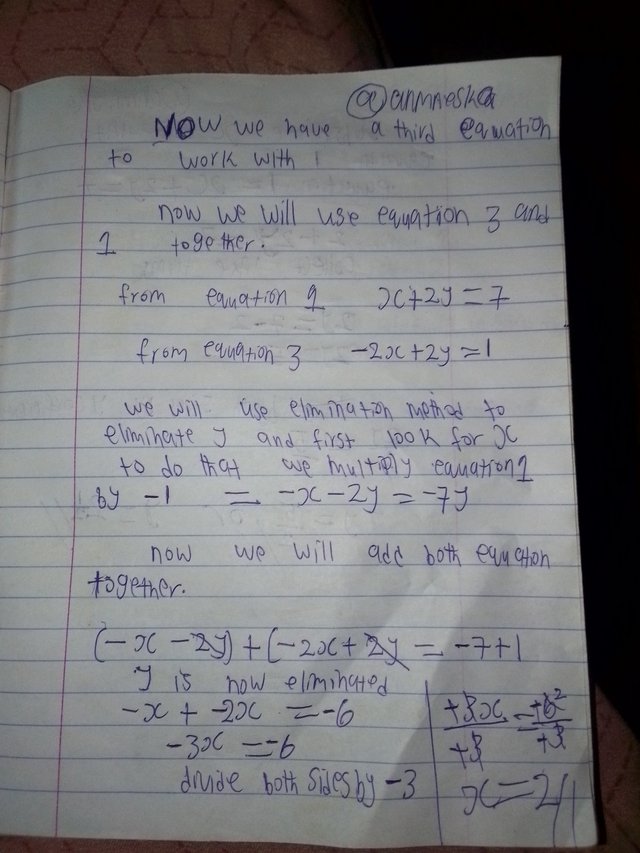 @anmneska
NOW we have a third equation
to work with
now we will use equation 3 and
1 together.
from equation 1 x+2y=7
from equation 3 -2x+2y=1
we will use elimination method to
eliminate y and first look for x
to do that we multiply equation 1
by -1 = -x-2y=-7y
now we will add both equation
together.
(-x-2y)+(-2x+2y=-7+1
y is now eliminated
-x+-2x=-6
-3x=-6
divide both sides by -3
+3x/+3=+6²/+3
x=2//